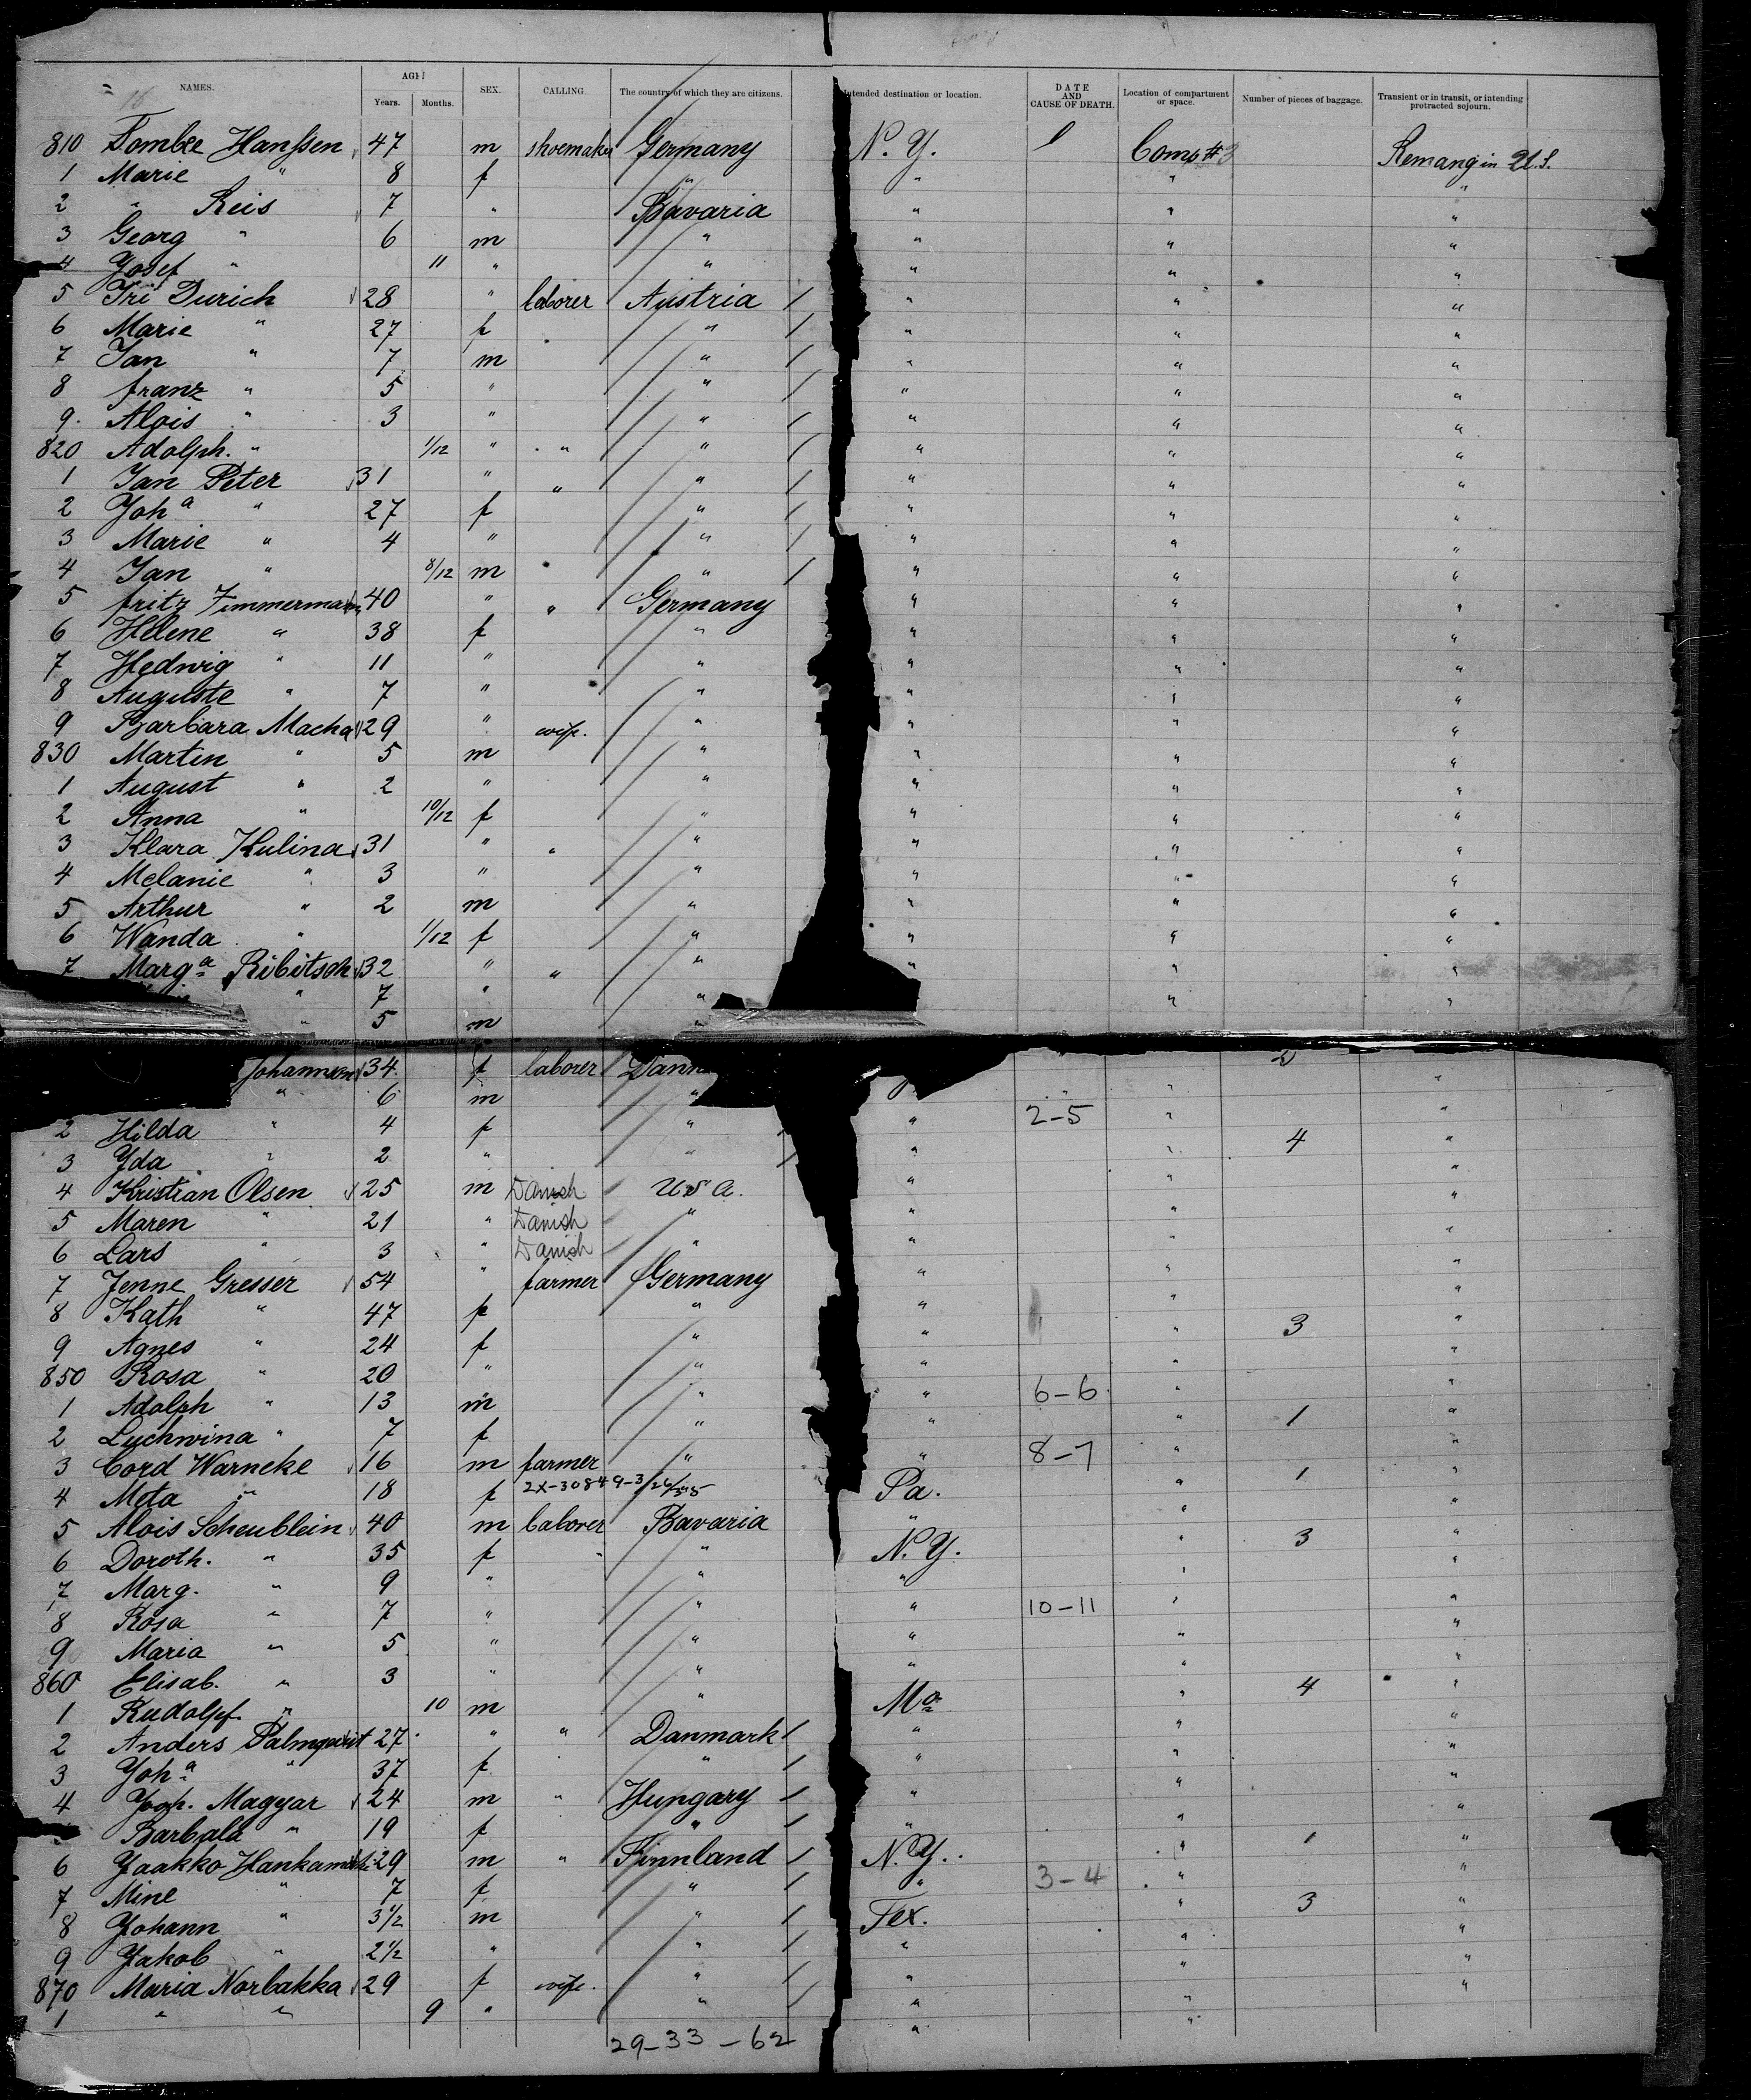 NAMES. AGE Years. Months. SEX. CALLING. The country of which they are citizens. Intended destination or location. DATE AND CAUSE OF DEATH. Location of compartment or space. Number of pieces of baggage. Transient or in transit, or intending protracted sojourn.
810 Tombee Hanssen 47 m shoemaker Germany N. Y. Comp #3 Remang in U.S.
1 Marie " 8 f " " " "
2 " Reis 7 " Bavaria " " "
3 Georg " 6 m " " " "
4 Josef " 11 " " " " "
5 Iri Durich 28 " laborer Austria " " "
6 Marie " 27 f " " " "
7 Jan " 7 m " " " "
8 franz " 5 " " " " "
9. Alois " 3 " " " " "
820 Adolph. " 1/12 " " " " " "
1 Jan Peter 31 " " " " " "
2 Joha " 27 f " " " "
3 Marie " 4 " " " " "
4 Jan " 8/12 m " " " "
5 fritz Zimmermann 40 " " Germany " " "
6 Helene " 38 f " " " "
7 Hedwig " 11 " " " " "
8 Auguste " 7 " " " " "
9 Barbara Macha 29 " wife. " " " "
830 Martin " 5 m " " " "
1 August " 2 " " " " "
2 Anna " 10/12 f " " " "
3 Klara Kulina 31 " " " " " "
4 Melanie " 3 " " " " "
5 Arthur " 2 m " " " "
6 Wanda " 1/12 f " " " "
7 Marga Ribitsch 32 " " " " "
" 7 " " " "
" 5 m "
Johannsen 34. f laborer 2
" 6 m " " "
2 Hilda " 4 f " " 2-5 " "
3 Yda " 2 " " " " 4 "
4 Kristian Olsen 25 m Danish U.S.A. " " "
5 Maren " 21 " Danish " " " "
6 Lars " 3 " Danish " " " "
7 Jenne Gresser 54 " farmer Germany " " "
8 Kath " 47 f " " " "
9 Agnes " 24 f " " " 3 "
850 Rosa " 20 " " " " "
1 Adolph " 13 m " " 6-6. " "
2 Luchwina " 7 f " " " 1 "
3 Cord Warneke 16 m farmer " " 8-7 " "
4 Meta " 18 f 2X-30849-3/26/35 " Pa. " 1 "
5 Alois Scheublein 40 m laborer Bavaria " " "
6 Doroth. " 35 f " " N. Y. " 3 "
7 Marg. " 9 " " " " "
8 Rosa " 7 " " " 10-11 " "
9 Maria " 5 " " " " "
860 Elisab. " 3 " " " " "
1 Rudolf " 10 m Mo " 4 "
2 Anders Palmqvist 27 " " Danmark " " "
3 Joha " 37 f " " " "
4 Jos. Magyar 24 m " Hungary " " "
Barbala " 19 f " " " "
6 Jaakko Hankamäki 29 m " Finnland N. Y. " 1 "
7 Mine " 7 f " " 3-4 " "
8 Johann " 3 1/2 m " Tex. " 3 "
9 Jakob " 2 1/2 " " " " "
870 Maria Norbakka 29 f wife. " " " "
1 " " 9 " " " "
29-33-62